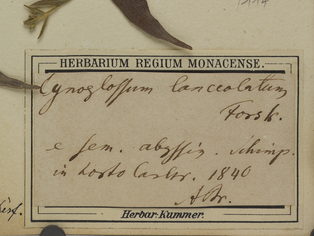 HERBARIUM REGIUM MONACENSE.
Cynoglossum lanceolatum
Forsk.
e sem. abyssin. schimp.
in horto Carlsr. 1840
A Br.
Herbar-Kammer.